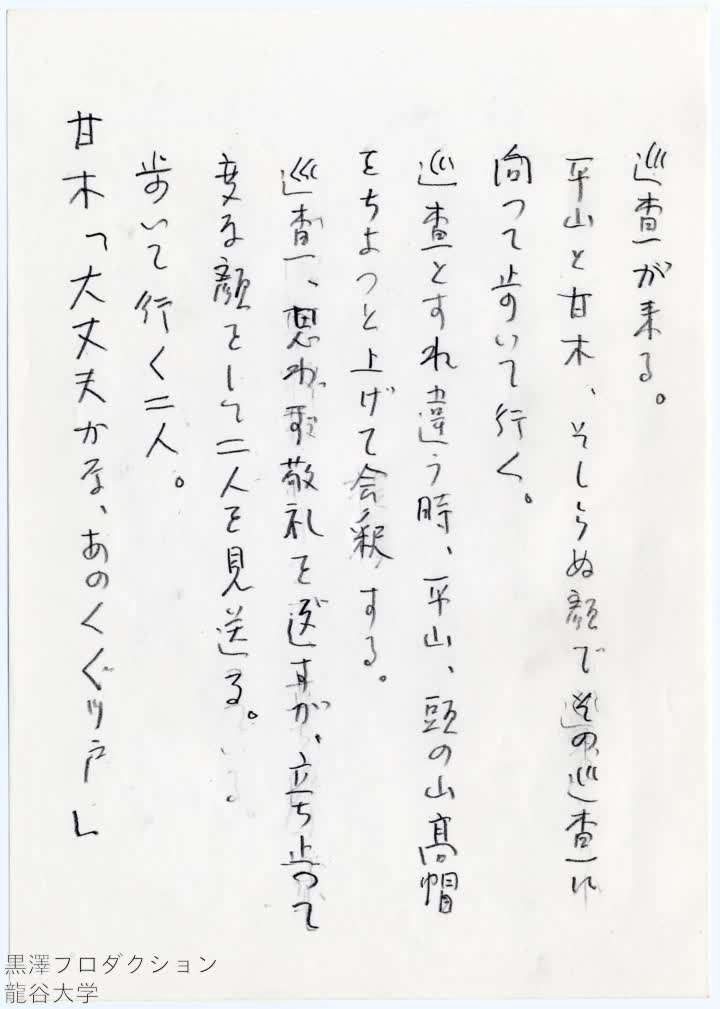 巡査が来る。
平山と甘木、そしらぬ顔でその巡査に
向つて歩いて行く。
巡査とすれ違う時、平山、頭の山高帽
をちよつと上げて会釈する。
巡査、思わず敬礼を返すが、立ち止つて
変な顔をして二人を見送る。
歩いて行く二人。
甘木「大丈夫かな、あのくぐり戸」
黒澤プロダクション
龍谷大学